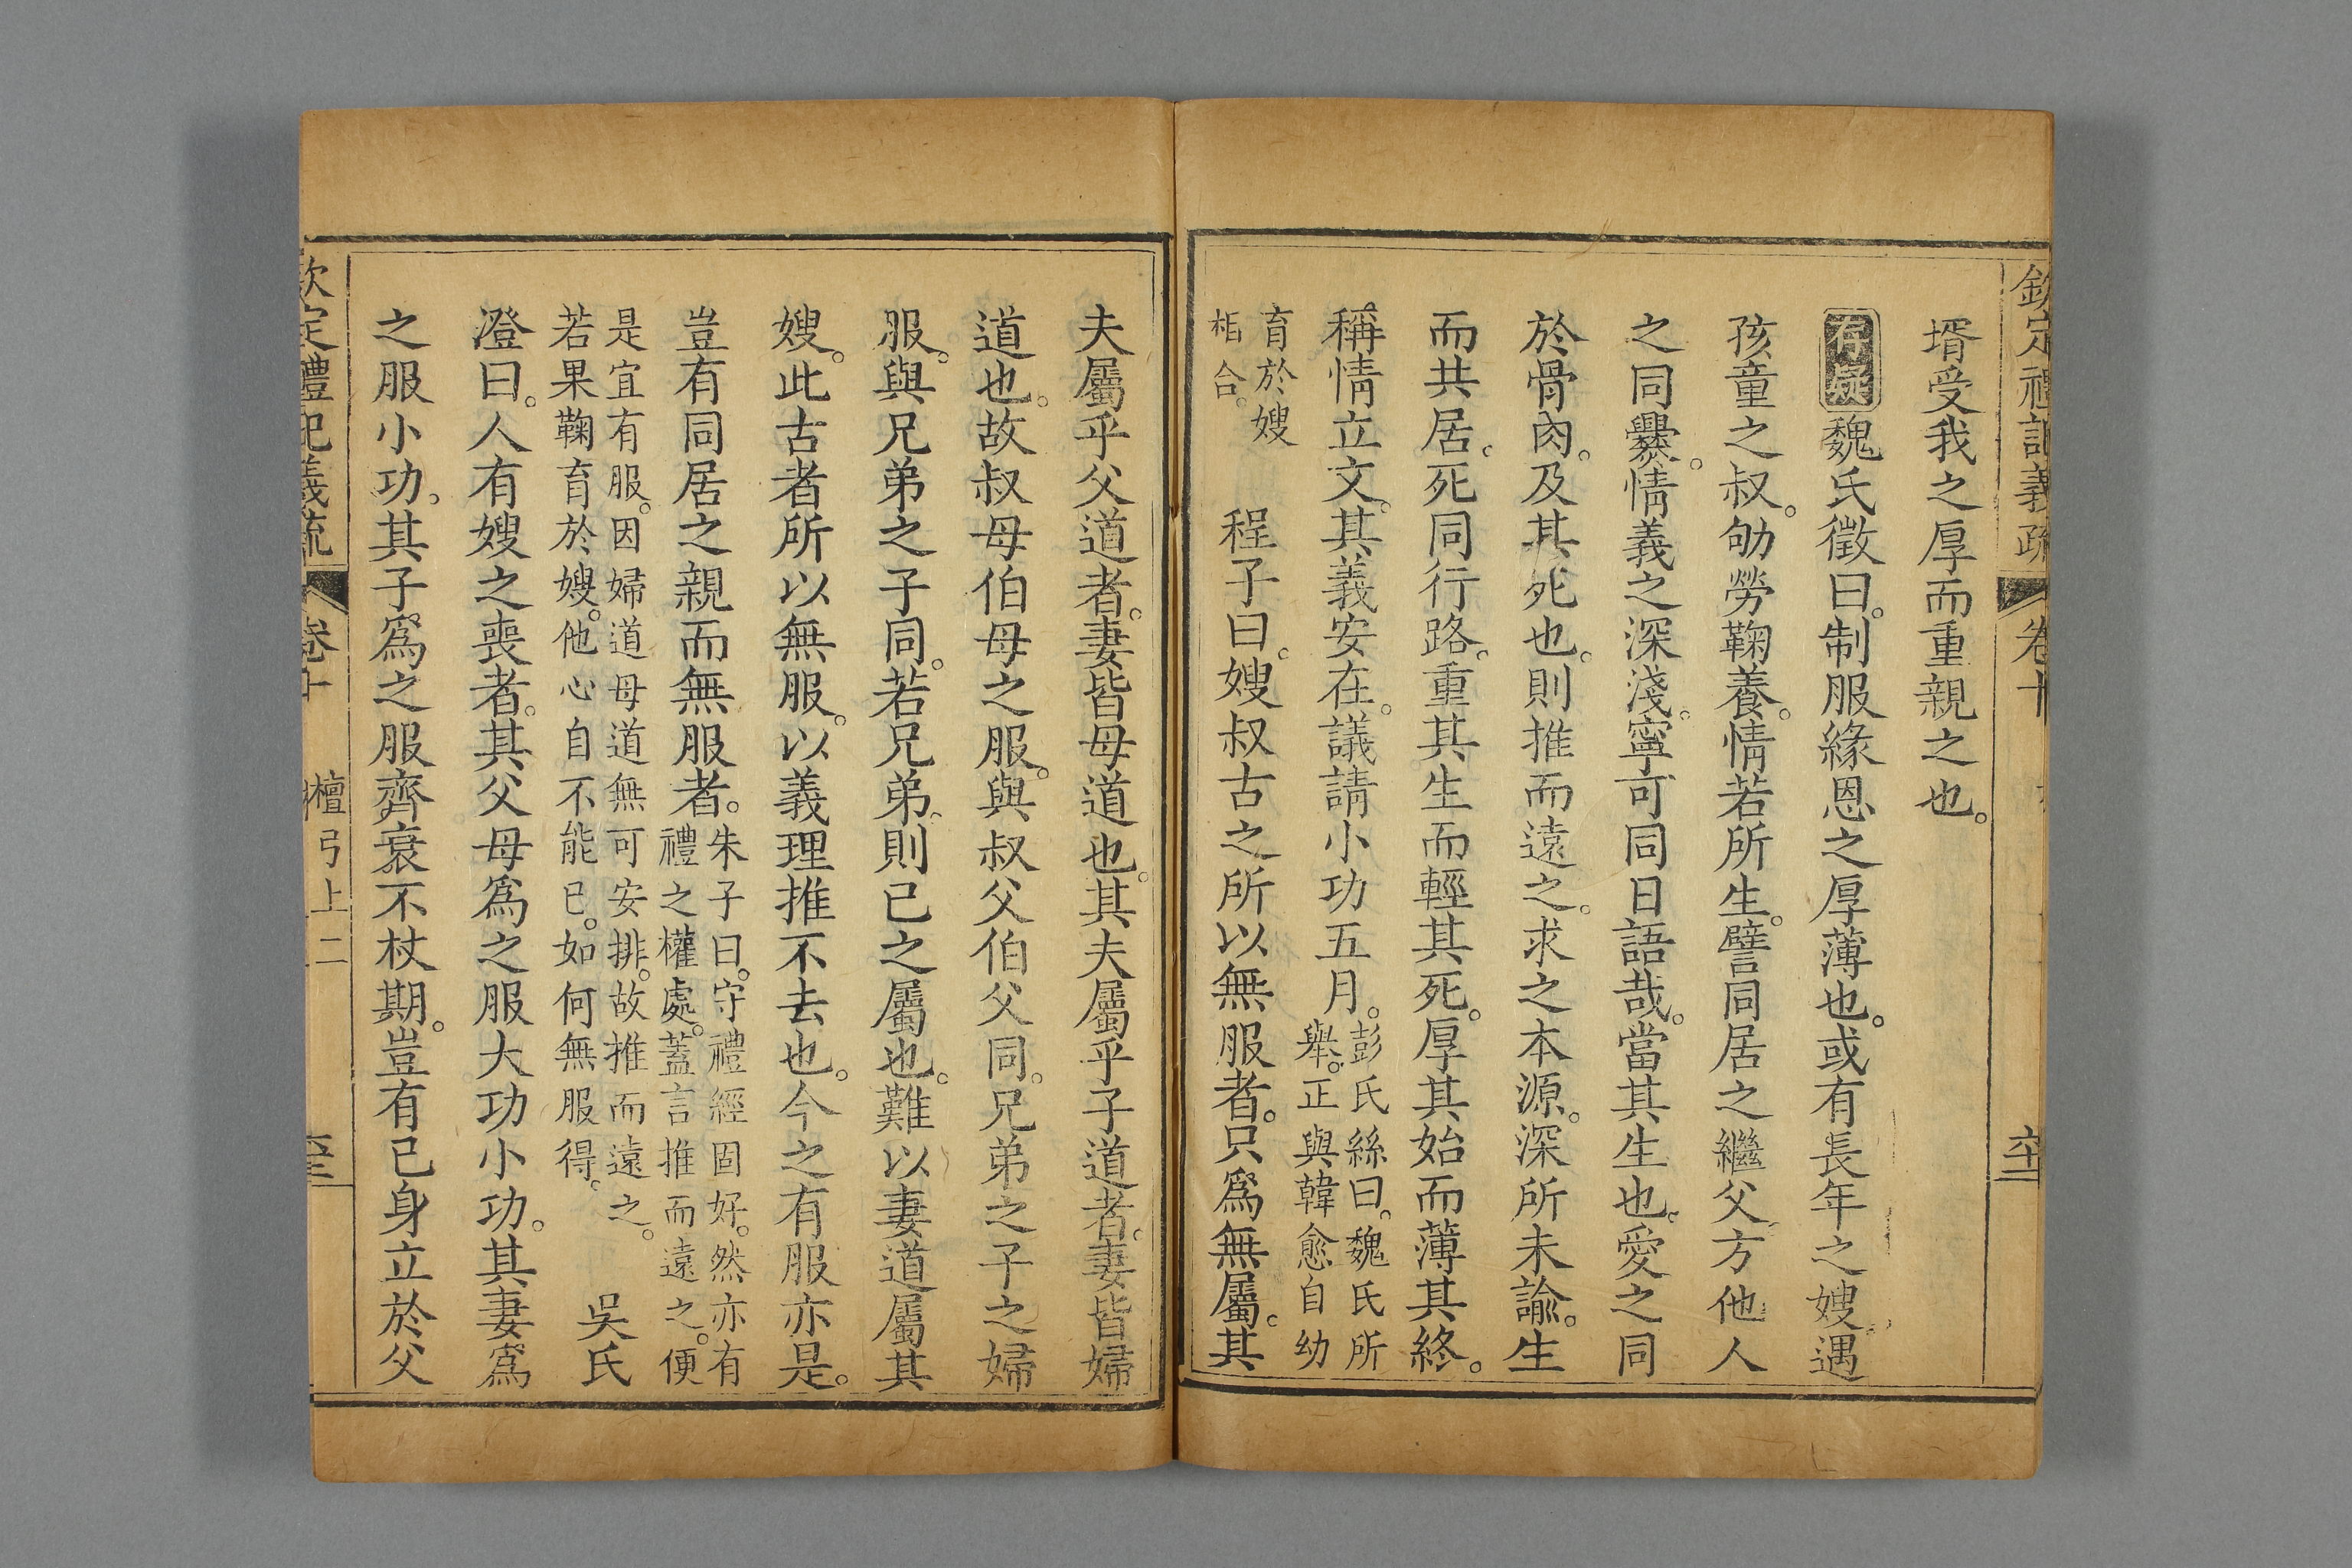 欽定禮記義疏 卷十 六十二
壻受我之厚而重親之也。
存疑魏氏徵曰。制服緣恩之厚薄也。或有長年之嫂。遇
孩童之叔。劬勞鞠養。情若所生。譬同居之繼父。方他人
之同爨。情義之深淺。寧可同日語哉。當其生也。愛之同
於骨肉。及其死也。則推而遠之。求之本源。深所未諭。生
而共居。死同行路。重其生而輕其死。厚其始而薄其終。
稱情立文。其義安在。議請小功五月。彭氏絲曰。魏氏所
舉。正與韓愈自幼
育於嫂
相合。
程子曰。嫂叔古之所以無服者。只爲無屬。其
夫屬乎父道者。妻皆母道也。其夫屬乎子道者。妻皆婦
道也。故叔母伯母之服。與叔父伯父同。兄弟之子之婦
服。與兄弟之子同。若兄弟。則已之屬也。難以妻道屬其
嫂。此古者所以無服。以義理推不去也。今之有服亦是。
豈有同居之親而無服者。朱子曰。守禮經固好。然亦有
禮之權處。蓋言推而遠之。便
是宜有服。因婦道母道無可安排。故推而遠之。
若果鞠育於嫂。他心自不能已。如何無服得。
吳氏
澄曰。人有嫂之喪者。其父母爲之服大功小功。其妻爲
之服小功。其子爲之服齊衰不杖期。豈有已身立於父
欽定禮記義疏 卷十 檀弓上二